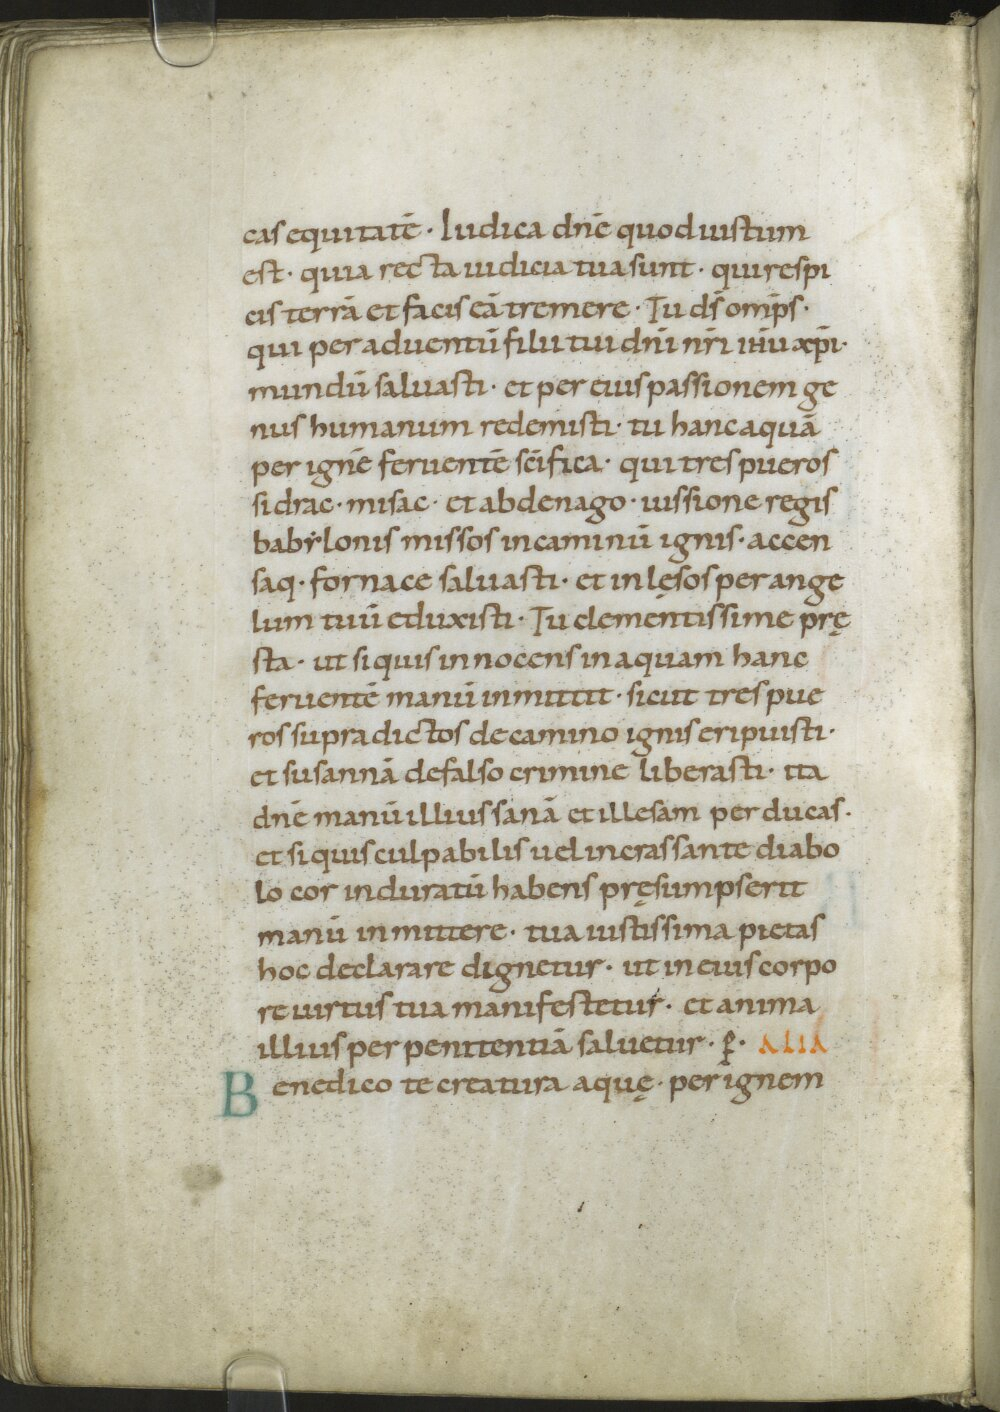 cas equitatē · Iudica dnē quod iustum
est · quia recta iudicia tua sunt · qui respi
cis terrā et facis eā tremere · Tu ds̄ omp̄s ·
qui per aduentū filii tui dnī nrī ihū xpī ·
mundū saluasti · et per eius passionem ge
nus humanum redemisti · tu hanc aquā
per ignē feruentē scīfica · qui tres pueros
sidrac · misac · et abdenago · iussione regis
babẏlonis missos in caminū ignis · accen
saq · fornace saluasti · et inlęsos per ange
lum tuū eduxisti · Tu clementissime prę
sta · ut si quis innocens in aquam hanc
feruentē manū inmittit · sicut tres pue
ros supradictos de camino ignis eripuisti ·
et susannā de falso crimine liberasti · ita
dnē manū illius sanā et illesam perducas ·
et si quis culpabilis uel incrassante diabo
lo cor induratū habens pręsumpserit
manū inmittere · tua iustissima pietas
hoc declarare dignetur · ut in eius corpo
re uirtus tua manifestetur · et anima
illius per penitentiā saluetur · ꝑ · ALIA
Benedico te creatura aquę · per ignem